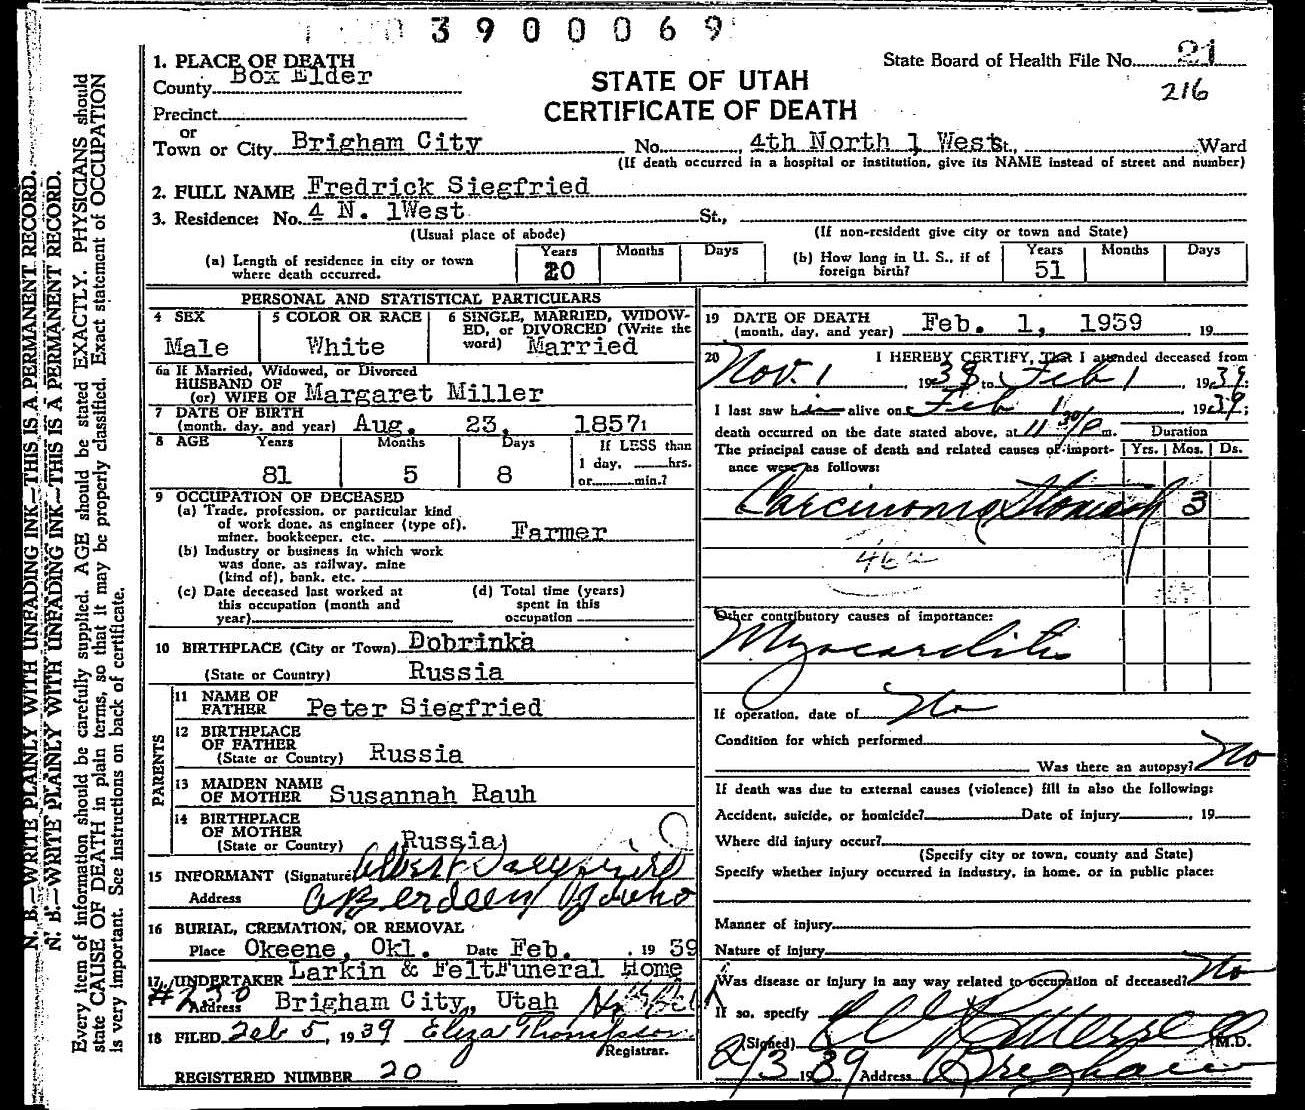 3900069
1. PLACE OF DEATH
County Box Elder
STATE OF UTAH
CERTIFICATE OF DEATH
State Board of Health File No. 21
216
Precinct
or
Town or City Brigham City No. 4th North 1 West St., Ward
(If death occurred in a hospital or institution, give its NAME instead of street and number)
2. FULL NAME Fredrick Siegfried
3. Residence: No. 4 N. 1West St.,
(Usual place of abode) (If non-resident give city or town and State)
(a) Length of residence in city or town where death occurred. Years 20 Months Days
(b) How long in U. S., if of foreign birth? Years 51 Months Days
PERSONAL AND STATISTICAL PARTICULARS
4 SEX Male
5 COLOR OR RACE White
6 SINGLE, MARRIED, WIDOWED, or DIVORCED (Write the word) Married
6a If Married, Widowed, or Divorced
HUSBAND OF
(or) WIFE OF Margaret Miller
7 DATE OF BIRTH
(month, day, and year) Aug. 23, 1857
8 AGE Years 81 Months 5 Days 8
If LESS than
1 day, hrs.
or min.?
9 OCCUPATION OF DECEASED
(a) Trade, profession, or particular kind
of work done, as engineer (type of),
miner, bookkeeper, etc. Farmer
(b) Industry or business in which work
was done, as railway, mine
(kind of), bank, etc.
(c) Date deceased last worked at
this occupation (month and
year)
(d) Total time (years)
spent in this
occupation
10 BIRTHPLACE (City or Town) Dobrinka
(State or Country) Russia
PARENTS
11 NAME OF
FATHER Peter Siegfried
12 BIRTHPLACE
OF FATHER
(State or Country) Russia
13 MAIDEN NAME
OF MOTHER Susannah Rauh
14 BIRTHPLACE
OF MOTHER
(State or Country) Russia
15 INFORMANT (Signature) Albert
Address Aberdeen Idaho
16 BURIAL, CREMATION, OR REMOVAL
Place Okeene, Okl. Date Feb. , 19 39
17 UNDERTAKER Larkin & Felt Funeral Home
#230
Address Brigham City, Utah
18 FILED Feb 5, 1939 Eliza Thompson
Registrar.
REGISTERED NUMBER 20
19 DATE OF DEATH
(month, day, and year) Feb. 1, 1939 , 19
20 I HEREBY CERTIFY, That I attended deceased from
Nov. 1 1938 to Feb 1 1939;
I last saw him alive on Feb 1 1939;
death occurred on the date stated above, at 11 30/P m.
Duration
The principal cause of death and related causes of importance were as follows:
Yrs. Mos. Ds.
Carcinoma Stomach 3
Other contributory causes of importance:
Myocarditis
If operation, date of No
Condition for which performed
Was there an autopsy? No
If death was due to external causes (violence) fill in also the following:
Accident, suicide, or homicide? Date of injury , 19
Where did injury occur?
(Specify city or town, county and State)
Specify whether injury occurred in industry, in home, or in public place:
Manner of injury
Nature of injury
Was disease or injury in any way related to occupation of deceased? No
If so, specify
(Signed) M.D.
2/3 1939 Address Brigham
N. B.—WRITE PLAINLY WITH UNFADING INK—THIS IS A PERMANENT RECORD.
N. B.—WRITE PLAINLY WITH UNFADING INK—THIS IS A PERMANENT RECORD.
Every item of information should be carefully supplied. AGE should be stated EXACTLY. PHYSICIANS should
state CAUSE OF DEATH in plain terms, so that it may be properly classified. Exact statement of OCCUPATION
is very important. See instructions on back of certificate.